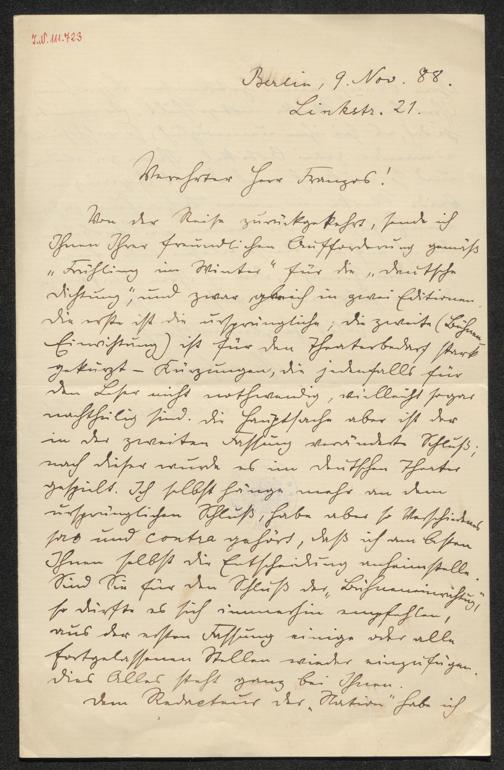 I.N. 111.723
Berlin, 9. Nov. 88.
Linkstr. 21.
Verehrter Herr Franzos!
Von der Reise zurückgekehrt, sende ich
Ihnen Ihrer freundlichen Aufforderung gemäß
„Frühling im Winter" für die „Deutsche
Dichtung", und zwar gleich in zwei Editionen.
Die erste ist die ursprüngliche; die zweite (Bühnen-
Einrichtung) ist für den Theaterbedarf stark
gekürzt – Kürzungen, die jedenfalls für
den Leser nicht nothwendig, vielleicht sogar
nachtheilig sind. Die Hauptsache aber ist der
in der zweiten Fassung veränderte Schluß;
nach dieser wurde es im Deutschen Theater
gespielt. Ich selbst hänge mehr an dem
ursprünglichen Schluß, habe aber so Verschiedenes
pro und contra gehört, daß ich am besten
Ihnen selbst die Entscheidung anheimstelle.
Sind Sie für den Schluß der „Bühneneinrichtung",
so dürfte es sich immerhin empfehlen,
aus der ersten Fassung einige oder alle
fortgelassenen Stellen wieder einzufügen.
Dies Alles steht ganz bei Ihnen.
Dem Redacteur der „Nation" habe ich